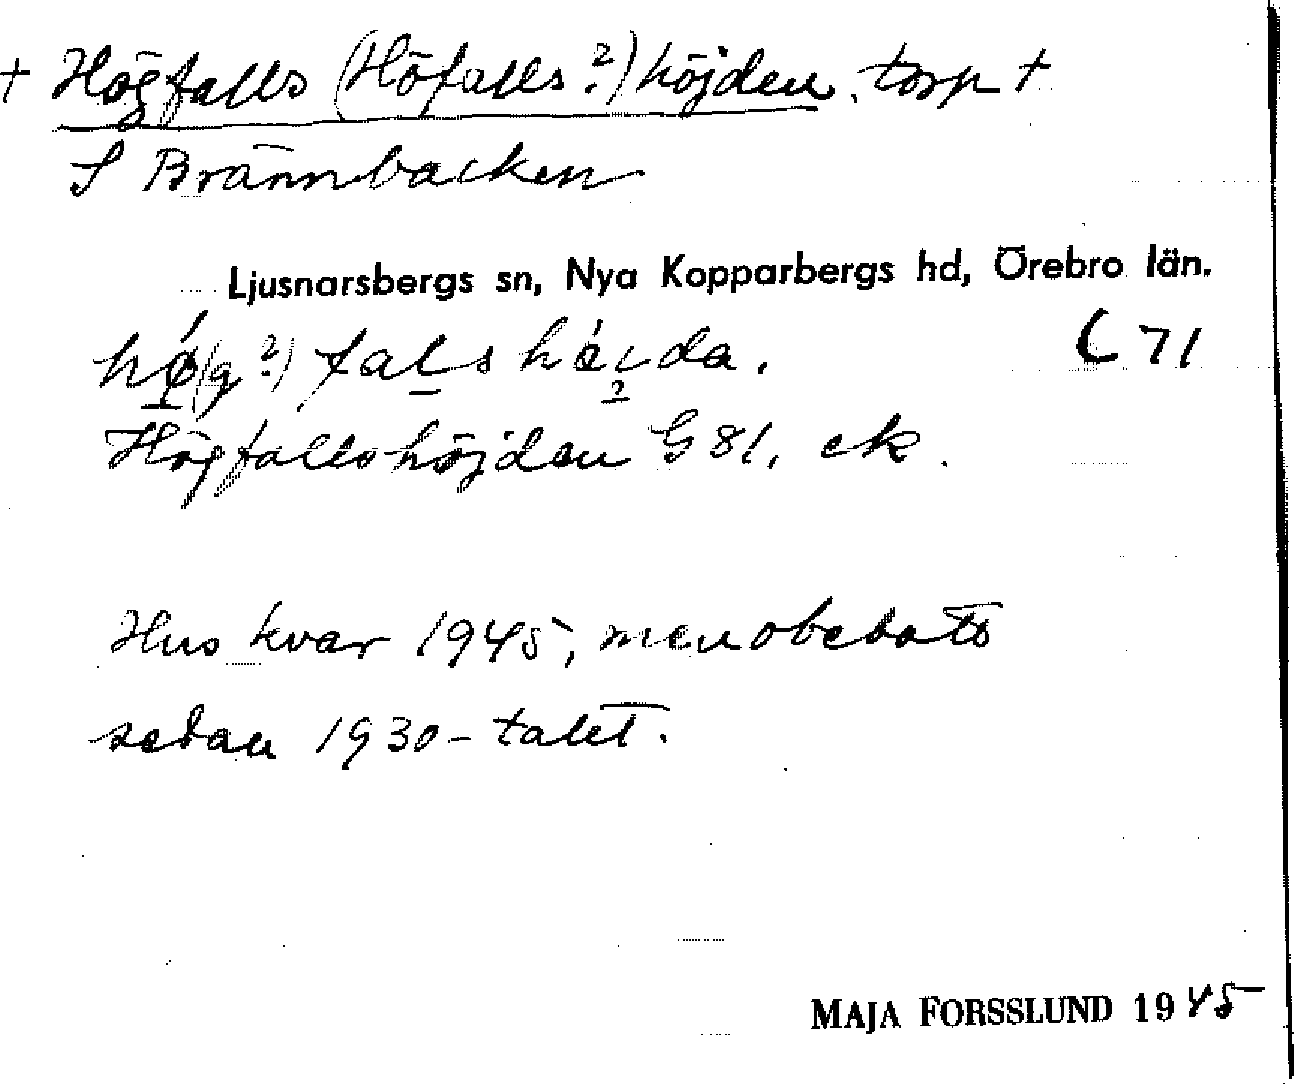 + Högfalls (Höfalls?) höjden, torp +
S Brännbacken
Ljusnarsbergs sn, Nya Kopparbergs hd, Örebro län.
hø(g?)falshøida. C 71
Högfallshöjden G 81, ek.
Hus kvar 1945, men obebott
sedan 1930-talet.
MAJA FORSSLUND 1945